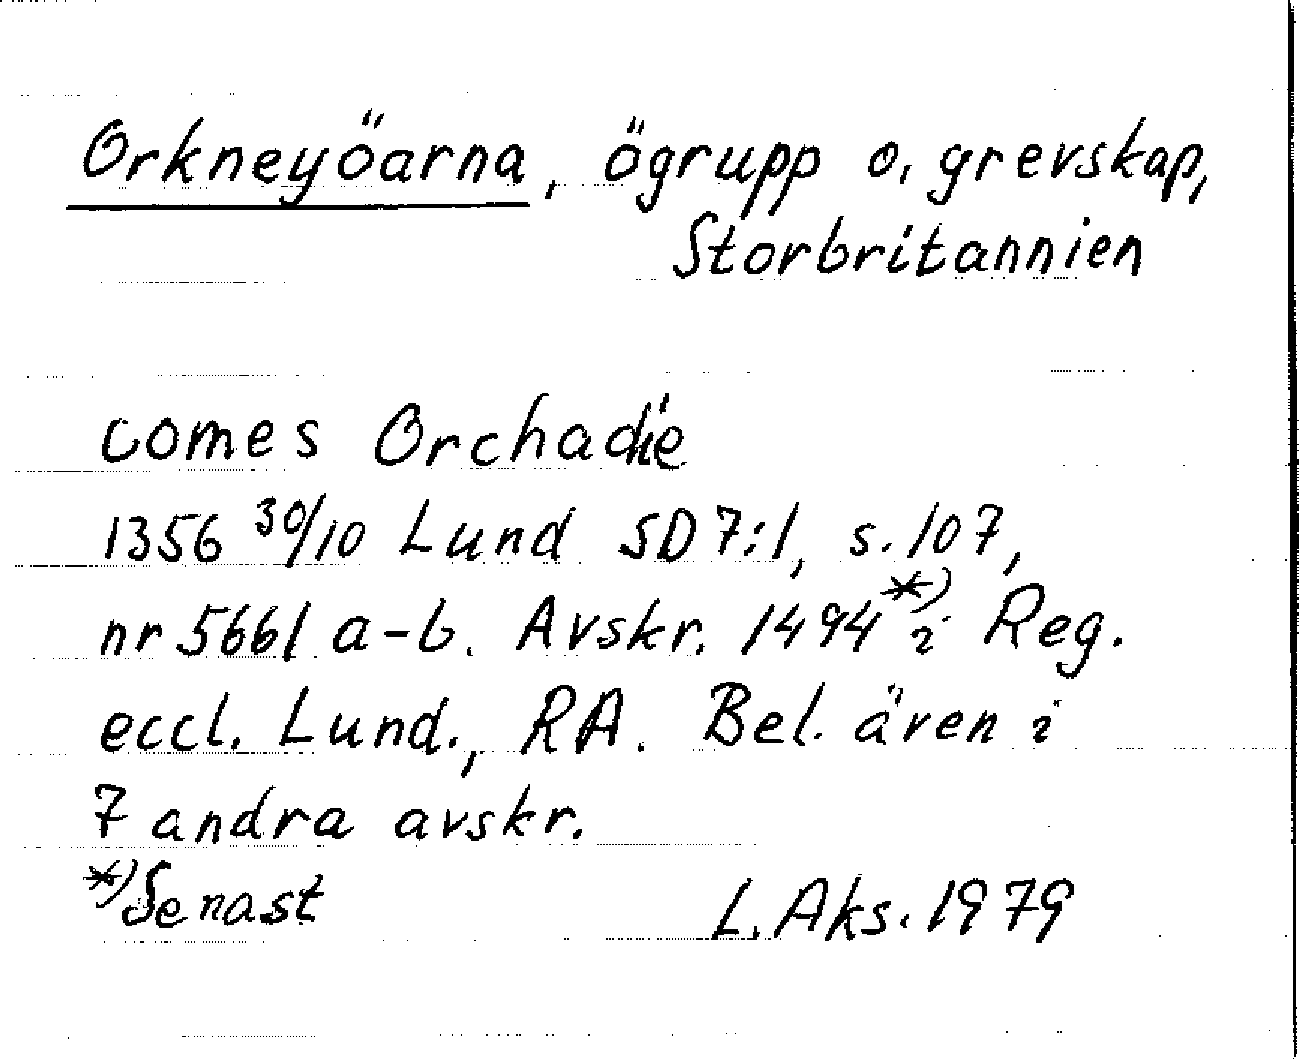 Orkneyöarna, ögrupp o. grevskap,
Storbritannien
comes Orchadie
1356 30/10 Lund SD 7:1, s. 107,
nr 5661 a-b. Avskr. 1494*) i Reg.
eccl. Lund., RA. Bel. även i
7 andra avskr.
*) Senast
L. Aks. 1979